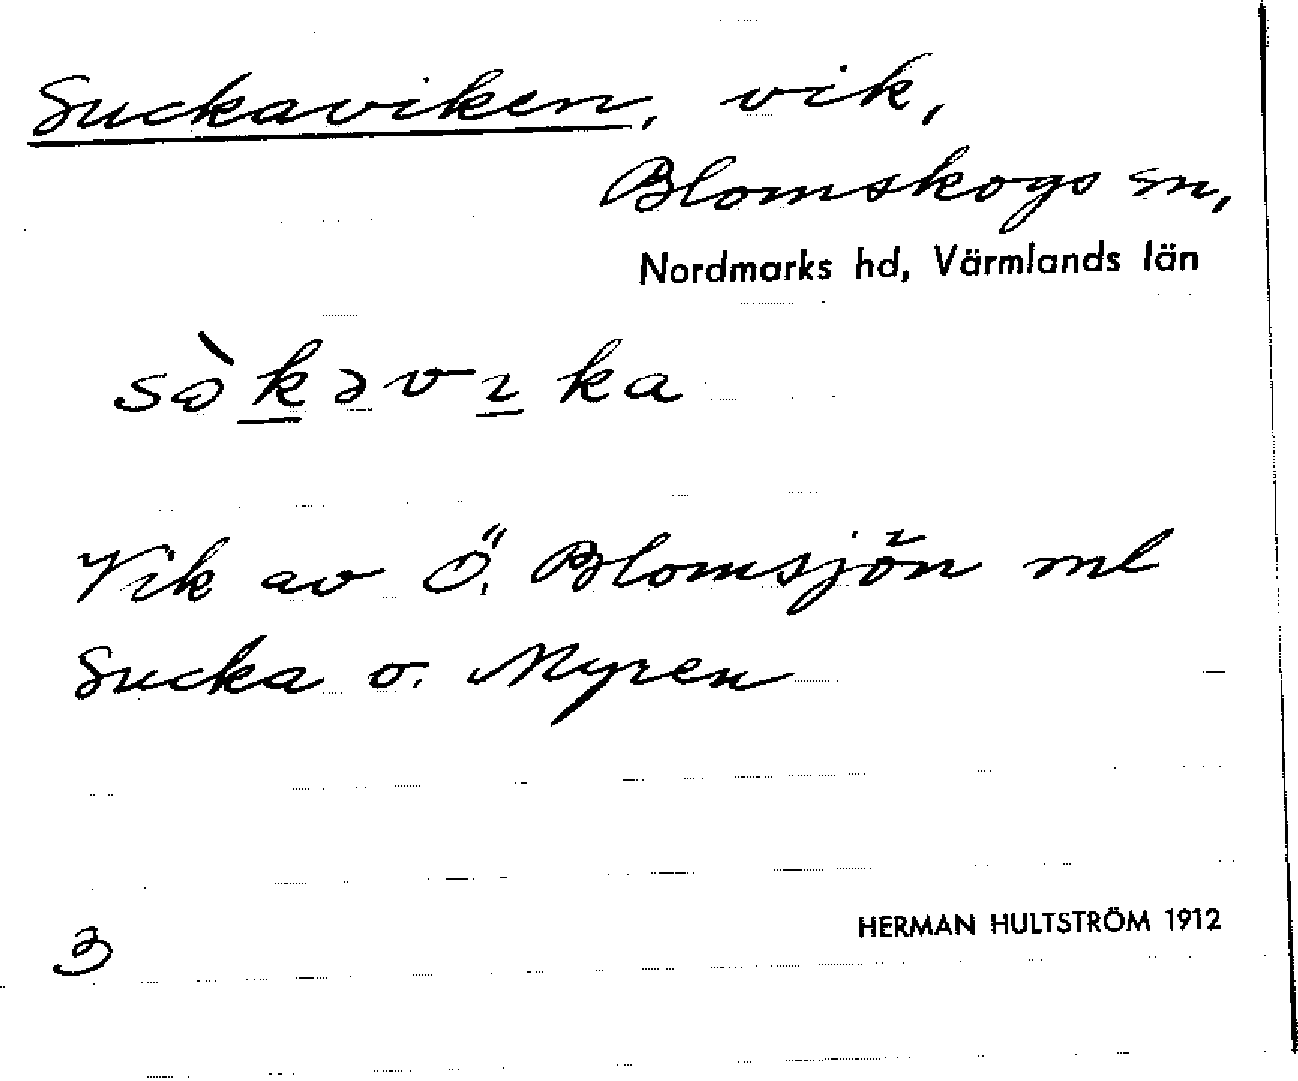 Suckaviken, vik,
Blomskogs sn,
Nordmarks hd, Värmlands län
sə̀kəvıka
Vik av Ö. Blomsjön ml
Sucka o. Myren
HERMAN HULTSTRÖM 1912
3